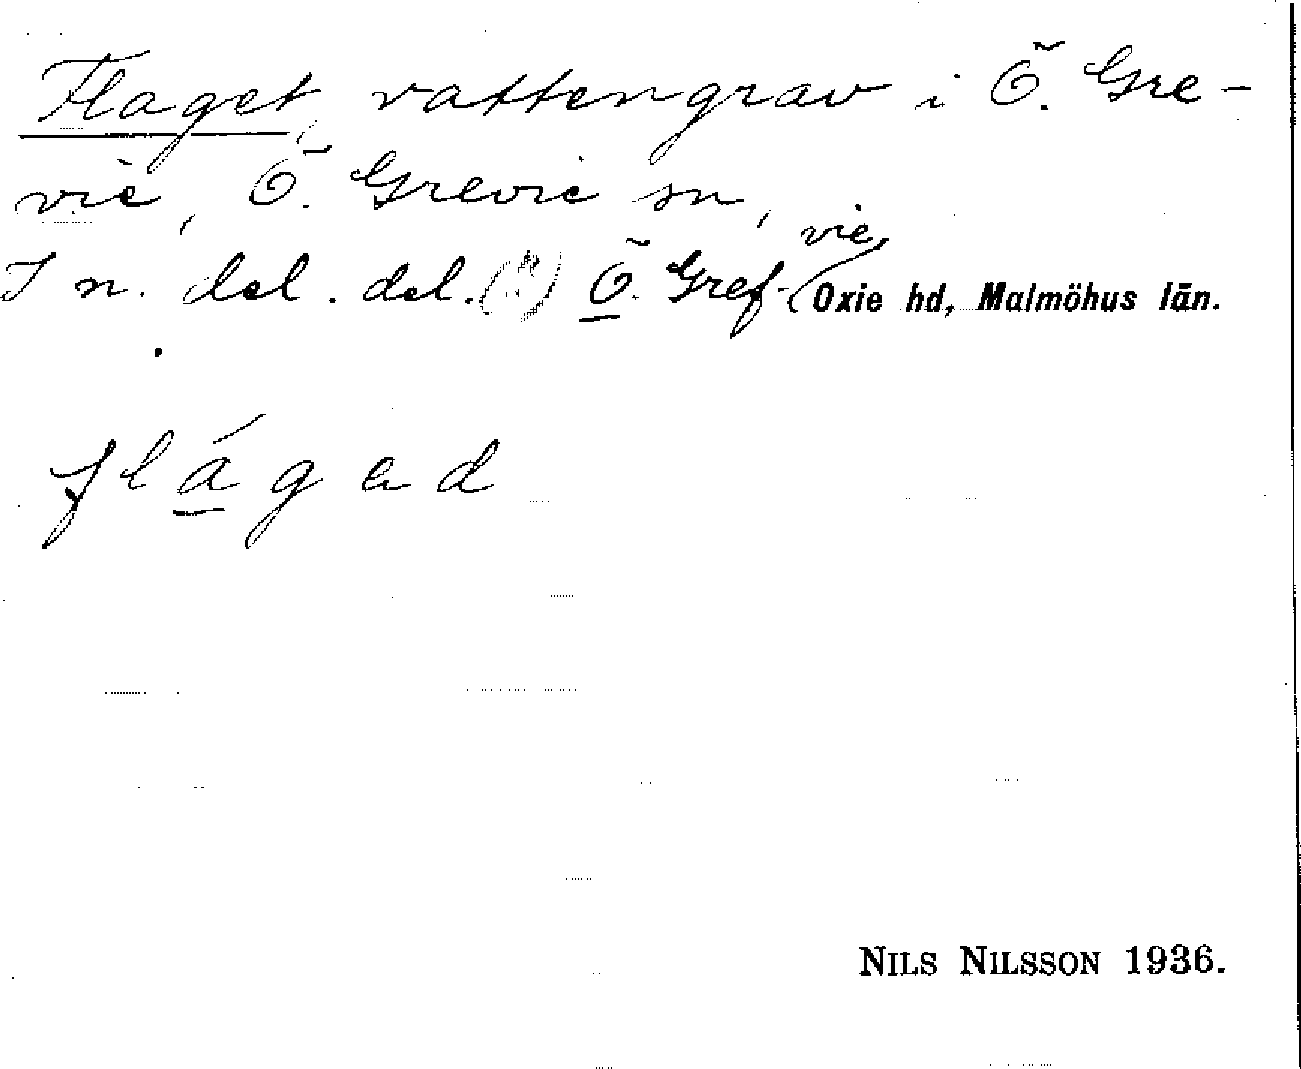 Flaget, vattengrav i Ö. Gre-
vie, Ö. Grevie sn,
I n. del. del. (?) Ö. Gref-vie, Oxie hd, Malmöhus län.
flágad
NILS NILSSON 1936.